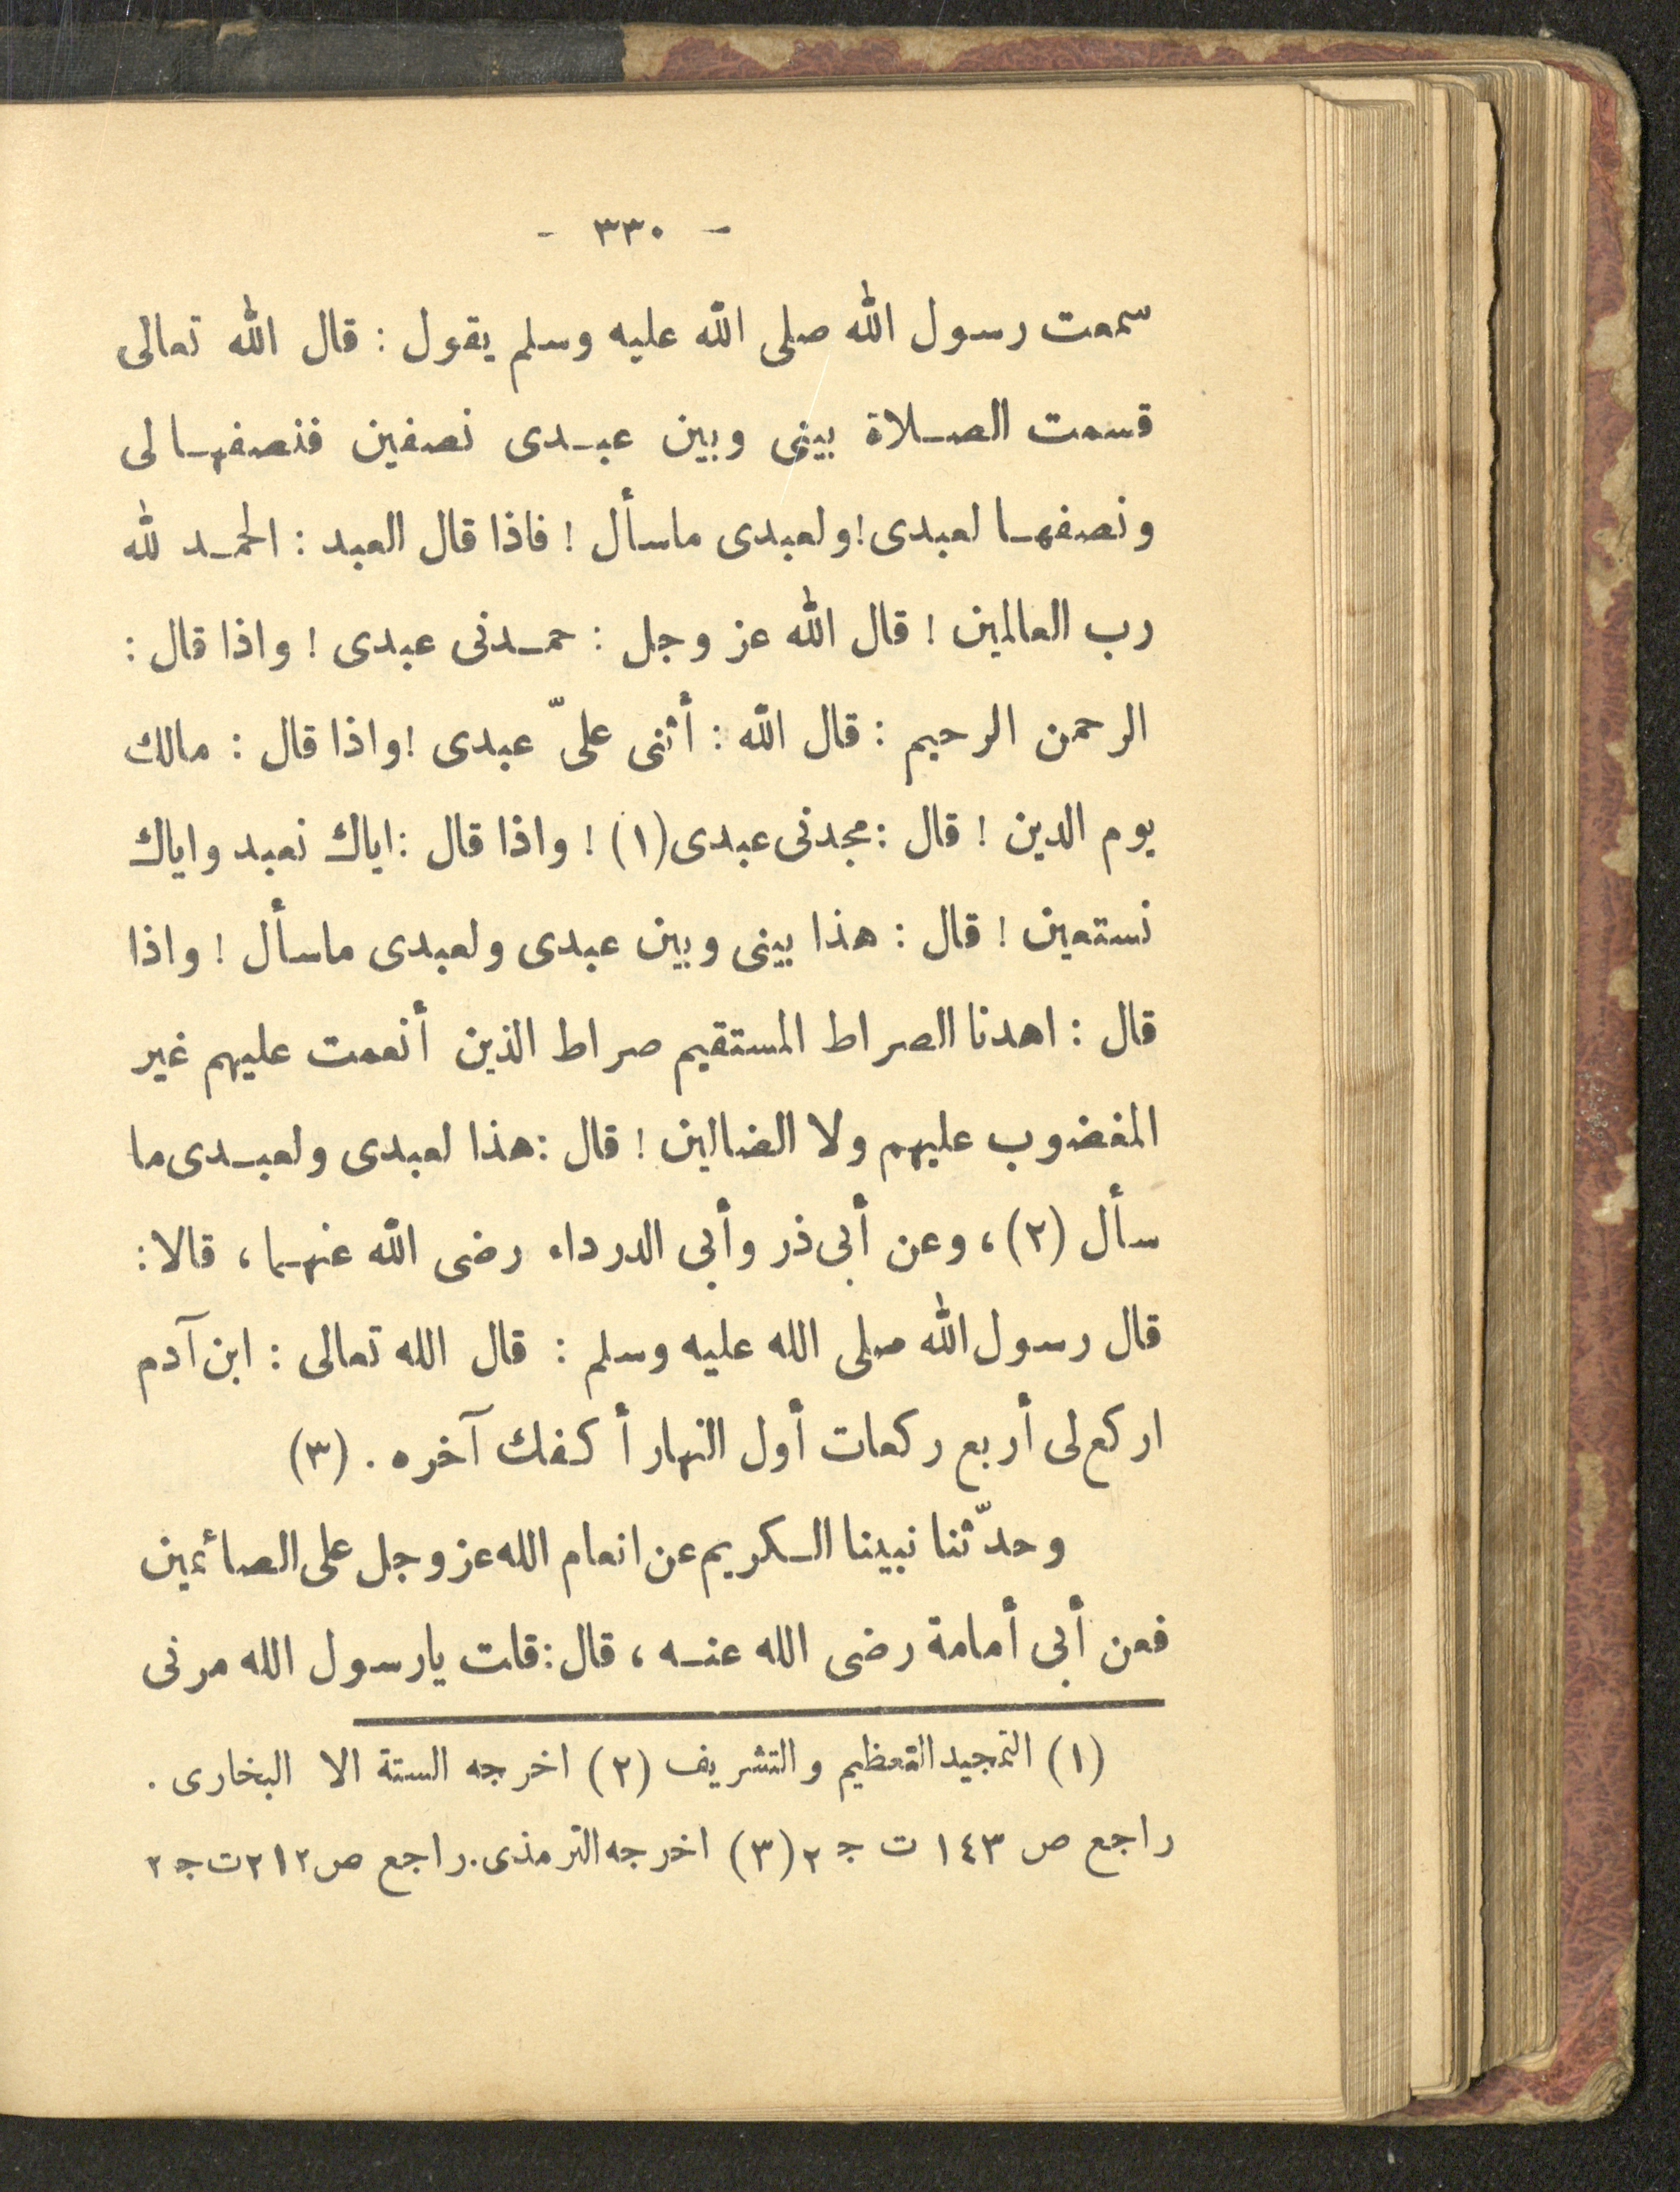 - ٣٣٠ -
سمعت رسول الله صلى الله عليه وسلم يقول : قال الله تعالى
قسمت الصلاة بينى وبين عبدى نصفين فنصفها لى
ونصفها لعبدى ! ولعبدى ماسأل ! فاذا قال العبد : الحمد لله
رب العالمين ! قال الله عز وجل : حمدنى عبدى ! واذا قال :
الرحمن الرحيم : قال الله : أثنى علىّ عبدى ! واذا قال : مالك
يوم الدين ! قال : مجدنى عبدى (١) ! واذا قال : اياك نعبد واياك
نستعين ! قال : هذا بينى وبين عبدى ولعبدى ماسأل ! واذا
قال : اهدنا الصراط المستقيم صراط الذين أنعمت عليهم غير
المغضوب عليهم ولا الضالين ! قال : هذا لعبدى ولعبدى ما
سأل (٢) ، وعن أبى ذر وأبى الدرداء رضى الله عنهما ، قالا :
قال رسول الله صلى الله عليه وسلم : قال الله تعالى : ابن آدم
اركع لى أربع ركعات أول النهار أكفك آخره . (٣)
وحدّثنا نبينا الكريم عن انعام الله عز وجل على الصائمين
فعن أبى أمامة رضى الله عنه ، قال : قلت يارسول الله مرنى
(١) التمجيد التعظيم والتشريف (٢) اخرجه الستة الا البخارى .
راجع ص ١٤٣ ت ج ٢ (٣) اخرجه الترمذى . راجع ص ٢١٢ ت ج ٢